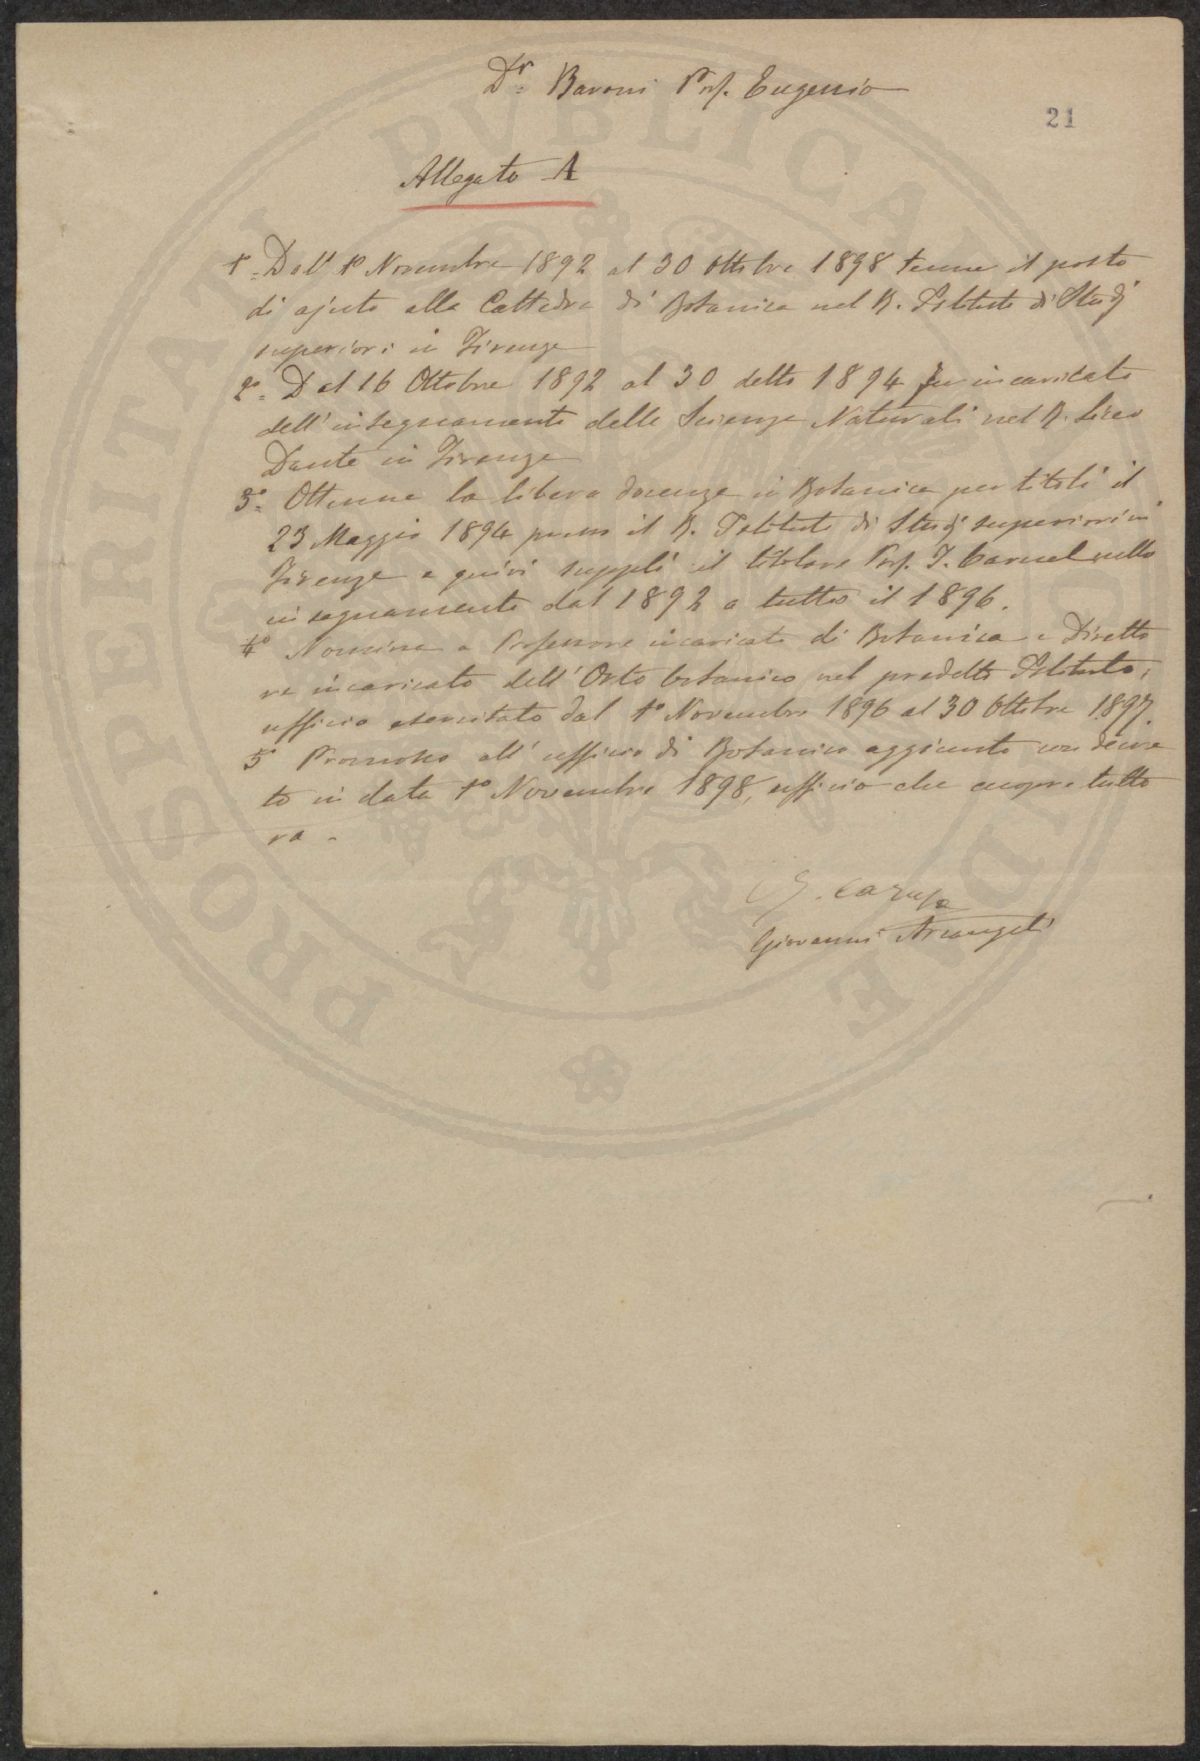 Dr. Baroni Prof. Eugenio
21
Allegato A
1º. Dall' 1º Novembre 1892 al 30 Ottobre 1898 tenne il posto
di ajuto alla Cattedra di Botanica nel R. Istituto di Studj
superiori in Firenze
2º. Dal 16 Ottobre 1892 al 30 detto 1894 fu incaricato
dell'insegnamento delle Scienze Naturali nel R. Liceo
Dante in Firenze
3º. Ottenne la libera docenza in Botanica per titoli il
23 Maggio 1894 presso il R. Istituto di Studj superiori in
Firenze e quivi supplì il titolare Prof. T. Caruel nello
insegnamento dal 1892 a tutto il 1896.
4º Nomina a Professore incaricato di Botanica e Diretto
re incaricato dell'Orto botanico nel predetto Istituto;
ufficio esercitato dal 1º Novembre 1896 al 30 Ottobre 1897.
5º Promosso all'ufficio di Botanico aggiunto con decre
to in data 1º Novembre 1898, ufficio che cuopre tutto
ra.
Giovanni Arcangeli
PROSPERITATI PVBLICAE